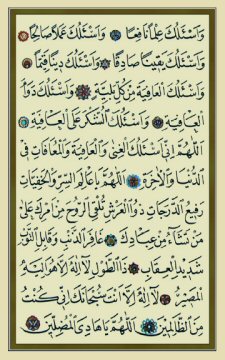 وَاَسْئَلُكَ عِلْمًا نَافِعًا وَاَسْئَلُكَ عَمَلًا صَالِحًا
وَاَسْئَلُكَ يَقِينًا صَادِقًا وَاَسْئَلُكَ دِينًا قَيِّمًا
وَاَسْئَلُكَ الْعَافِيَةَ مِنْ كُلِّ بَلِيَّةٍ وَاَسْئَلُكَ دَوَامَ
الْعَافِيَةِ وَاَسْئَلُكَ الشُّكْرَ عَلَى الْعَافِيَةِ
اَللّٰهُمَّ اِنِّى اَسْئَلُكَ الْغِنٰى وَالْعَافِيَةَ وَالْمُعَافَاتَ فِى
الدُّنْيَا وَالْاٰخِرَةِ اَللّٰهُمَّ يَا عَالِمَ السِّرِّ وَالْخَفِيَّاتِ
رَفِيعَ الدَّرَجَاتِ ذُو الْعَرْشِ تُلْقِى الرُّوحَ مِنْ اَمْرِكَ عَلٰى
مَنْ تَشَاۤءُ مِنْ عِبَادِكَ غَافِرَ الذَّنْبِ وَقَابِلَ التَّوْبِ
شَدِيدَ الْعِقَابِ ذَا الطَّوْلِ لَاۤ اِلٰهَ اِلَّا هُوَ اِلَيْهِ
الْمَصِيرُ لَاۤ اِلٰهَ اِلَّاۤ اَنْتَ سُبْحَانَكَ اِنِّى كُنْتُ
مِنَ الظَّالِمِينَ اَللّٰهُمَّ يَا هَادِىَ الْمُضِلِّينَ